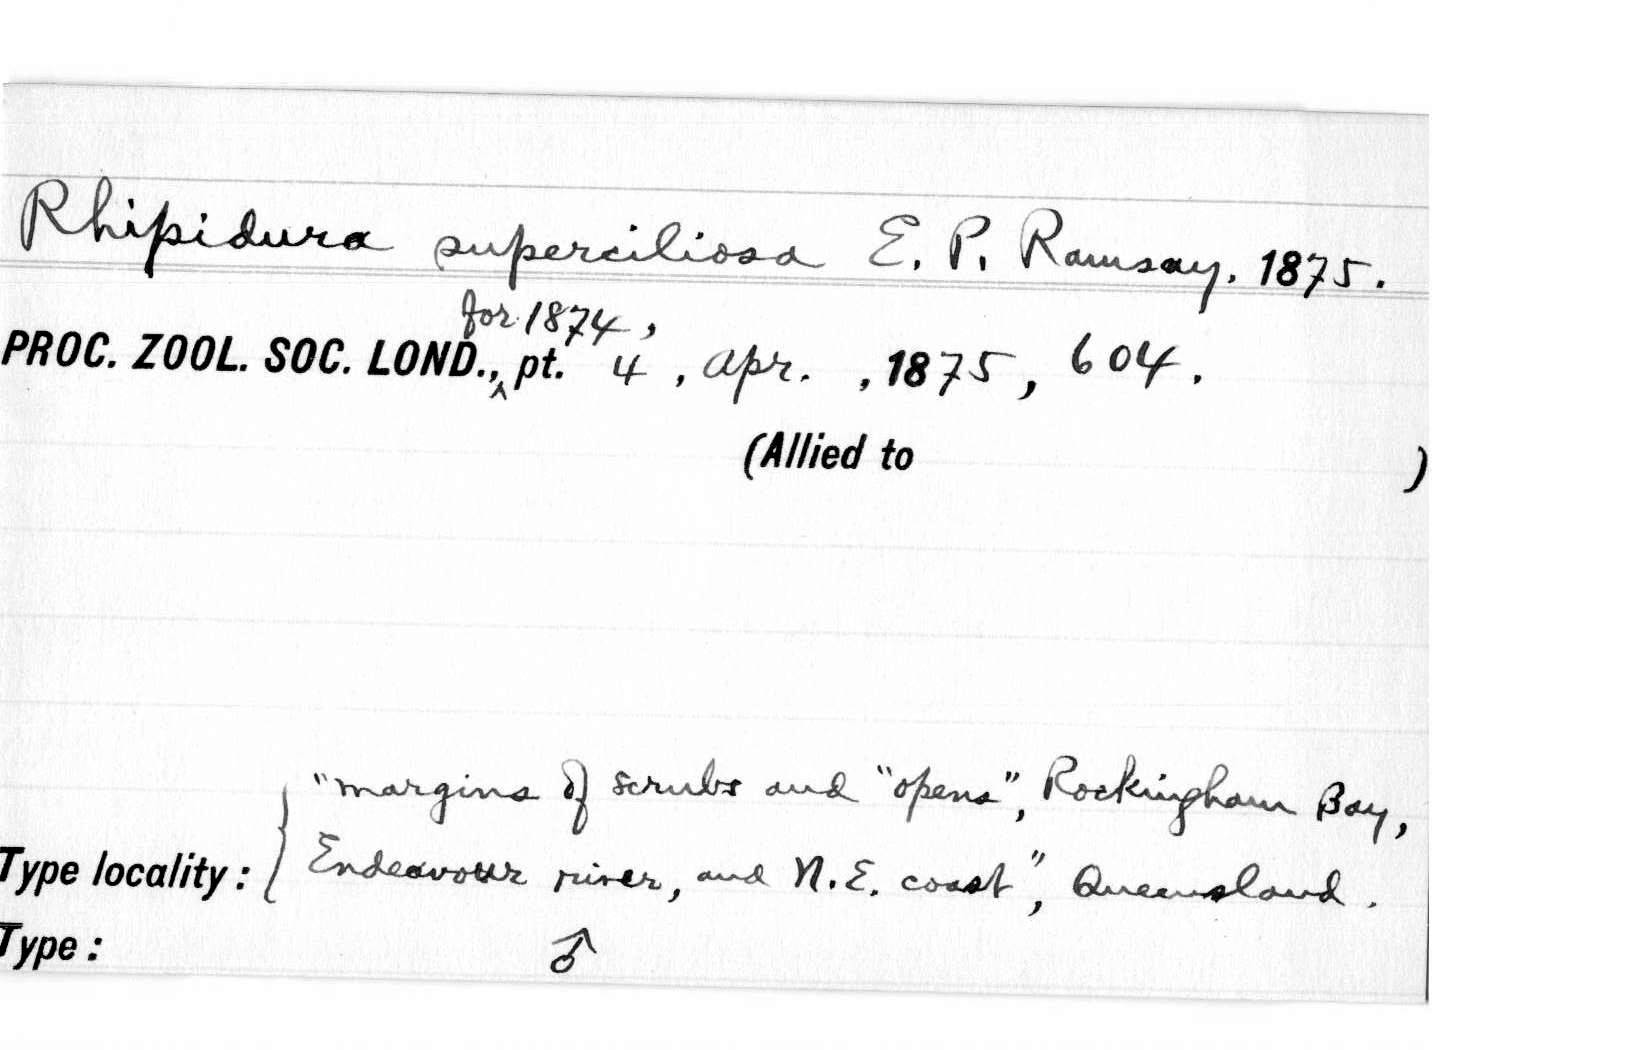 Rhipidura superciliosa E. P. Ramsay. 1875.
for 1874,
PROC. ZOOL. SOC. LOND.,‸ pt. 4, Apr. , 1875, 604.
(Allied to )
"margins of scrubs and "opens", Rockingham Bay,
Type locality: { Endeavour river, and N.E. coast", Queensland.
Type: ♂